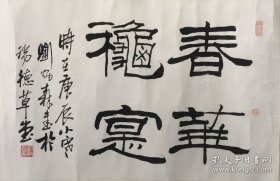 春華
穐實
時在庚辰小
劉炳森書於
瑞德草堂
孔夫子旧书网